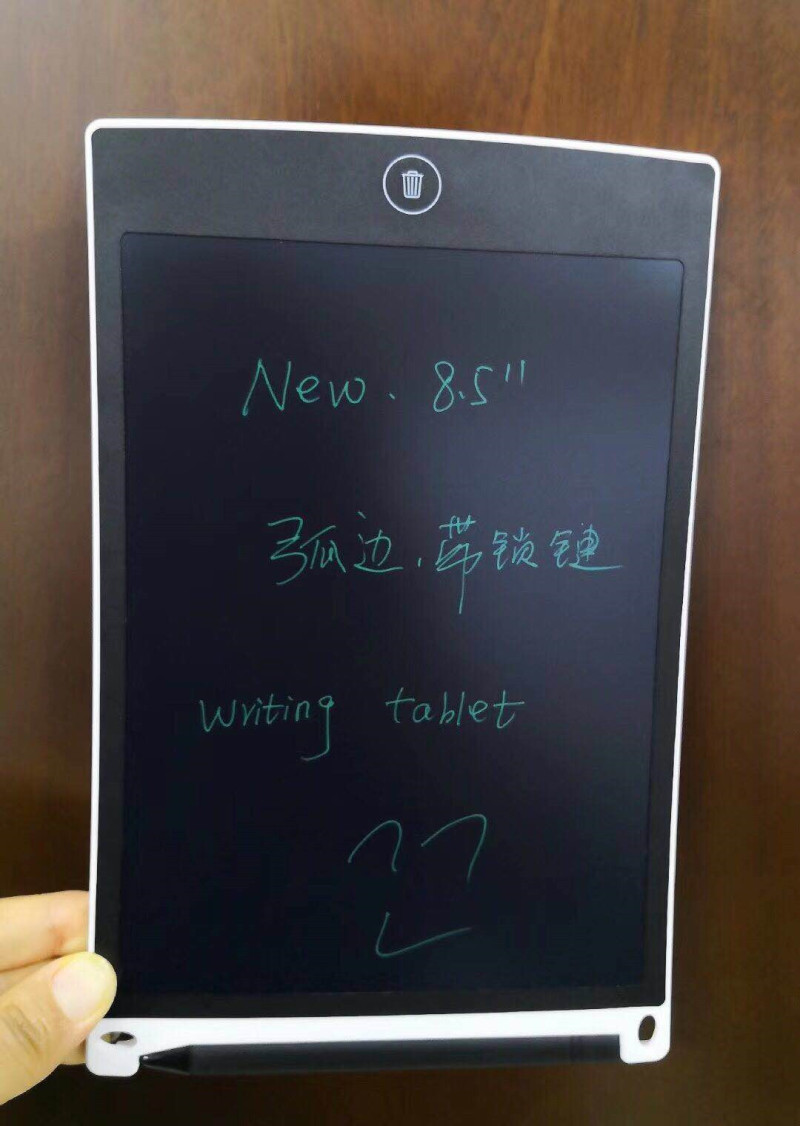 New. 8.5"
弧边，带锁键
Writing tablet